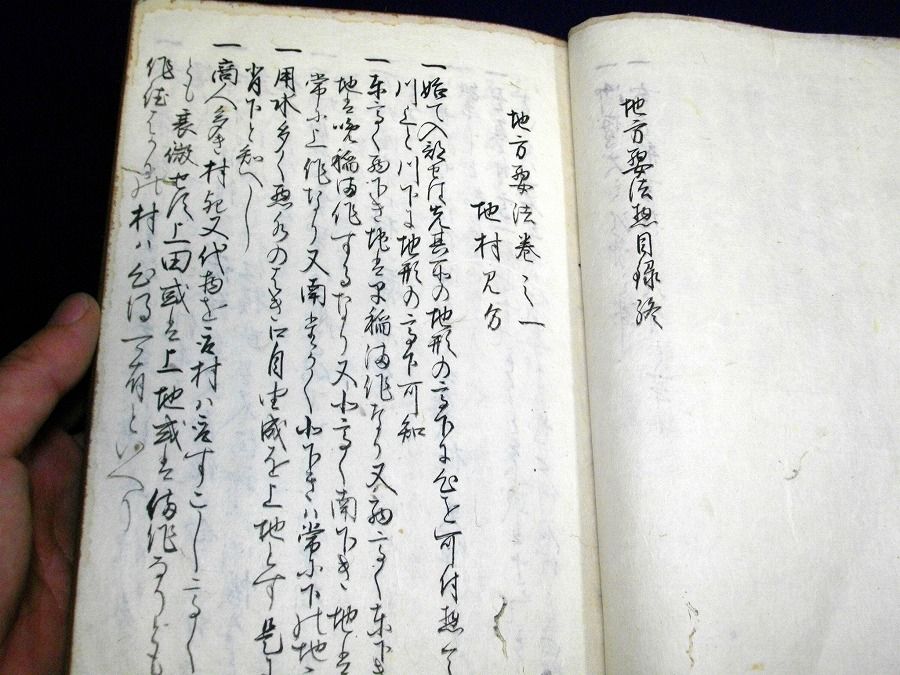 地方要法惣目録終
地方要法巻之一
地村見分
一始て入部せは先其所の地形の高下に心を可付惣して
川上と川下は地形の高下可知
一東高く西下き地は早稲満作なり又西高く東下き
地は晩稲満作するなり又北高く南下き地は
常に上作なり又南高く北下きハ常に下の地
一用水多く悪水のはき口自由成を上地とす是に
背下と知へし
一商人多き村、又代物を
とも衰微せす上田或は上地或は満作なりとも
村ハ心得可有といへり